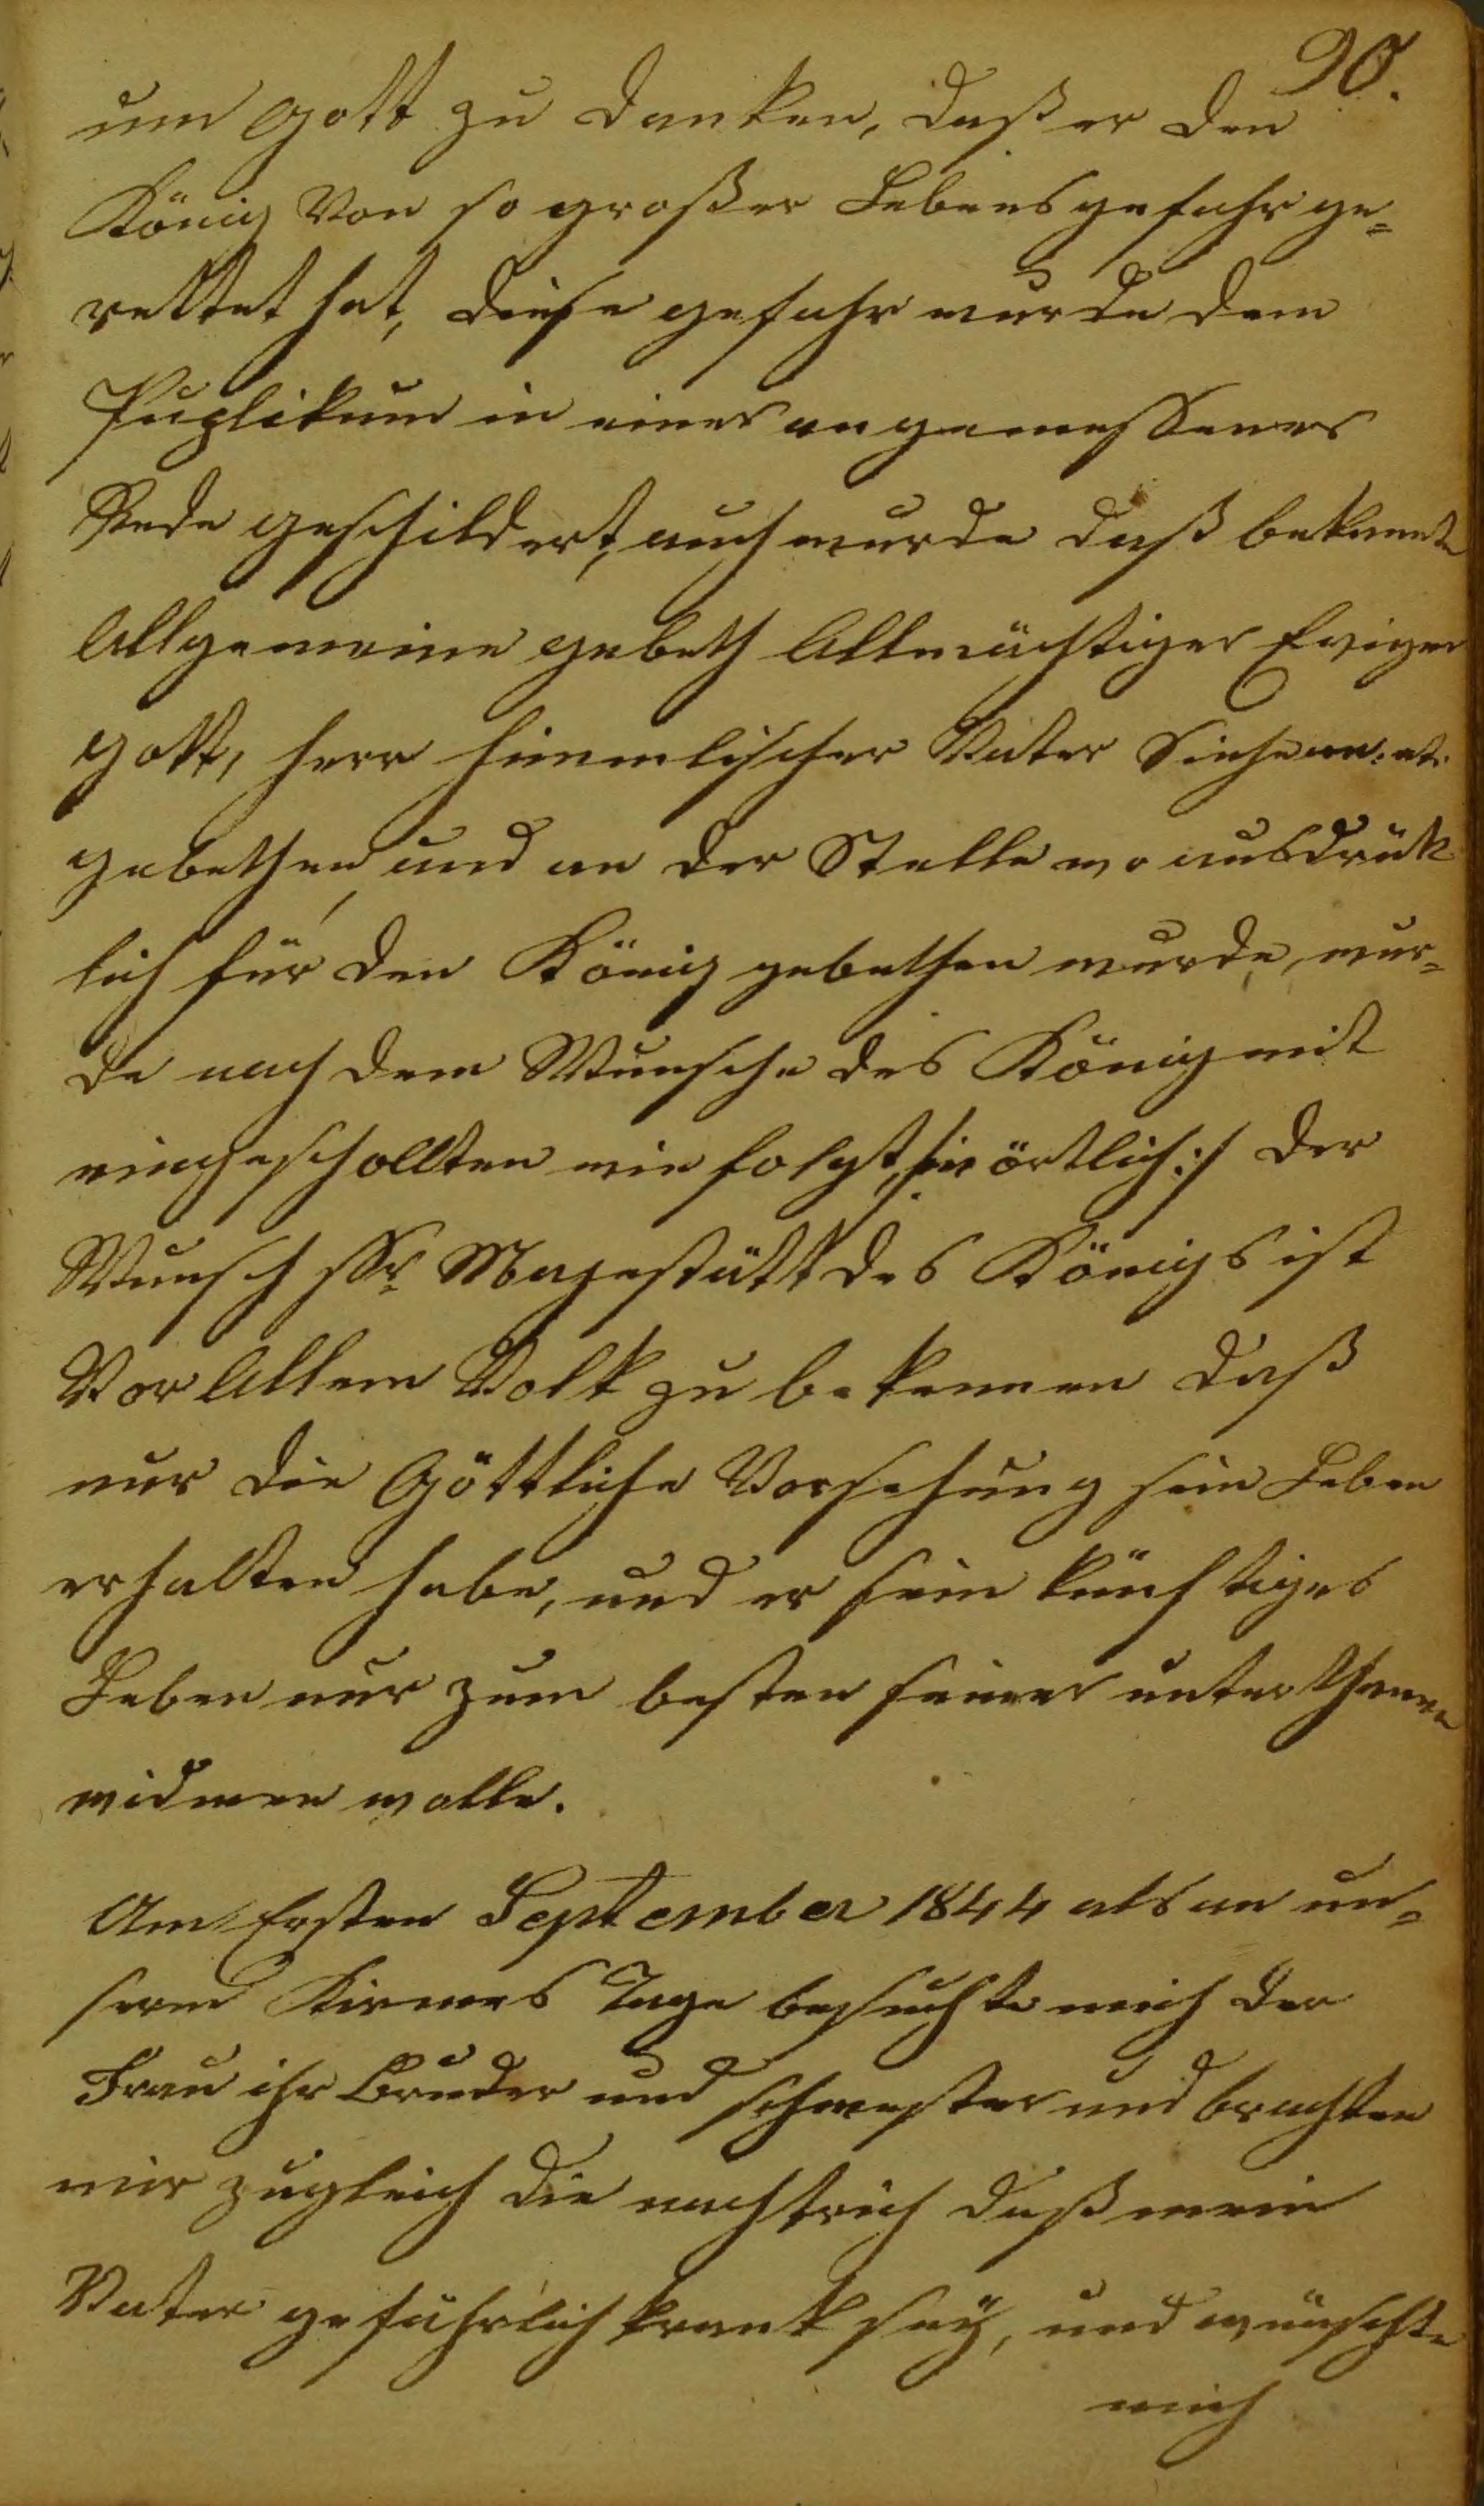 90.
um Gott zu danken, daß er den
König Von so großer Lebensgefahr ge=
rettet hat, diese gefahr wurde dem
Puplikum in einer angemessener
Rede geschildert, auch wurde daß bekannte
Allgemeine gebeth Allmächtiger Ewiger
gott, herr himmlischer Vater Siehe an: etc.
gebethen, und an der Stelle wo ausdrük
lich für den König gebethen wurde, wur=
de nach dem Wunsche des König mit
eingeschollten wie folgt, wörtlich:/ Der
Wunsch Sr Majestätt des Königs ist
Vor Allem Volk zu bekennen daß
nur die Göttliche Vorsehung sein Leben
erhalten habe, und er sein künftiges
Leben nur zum besten seiner unterthanen
widmen wolle.
Am Ersten September 1844 als an un=
serm Kirmes Tage besuchte mich der
Frau ihr Bruder und schwester und brachten
mir zugleich die nachtrich daß mein
Vater gefährlich krank seÿ, und wünschte
mich